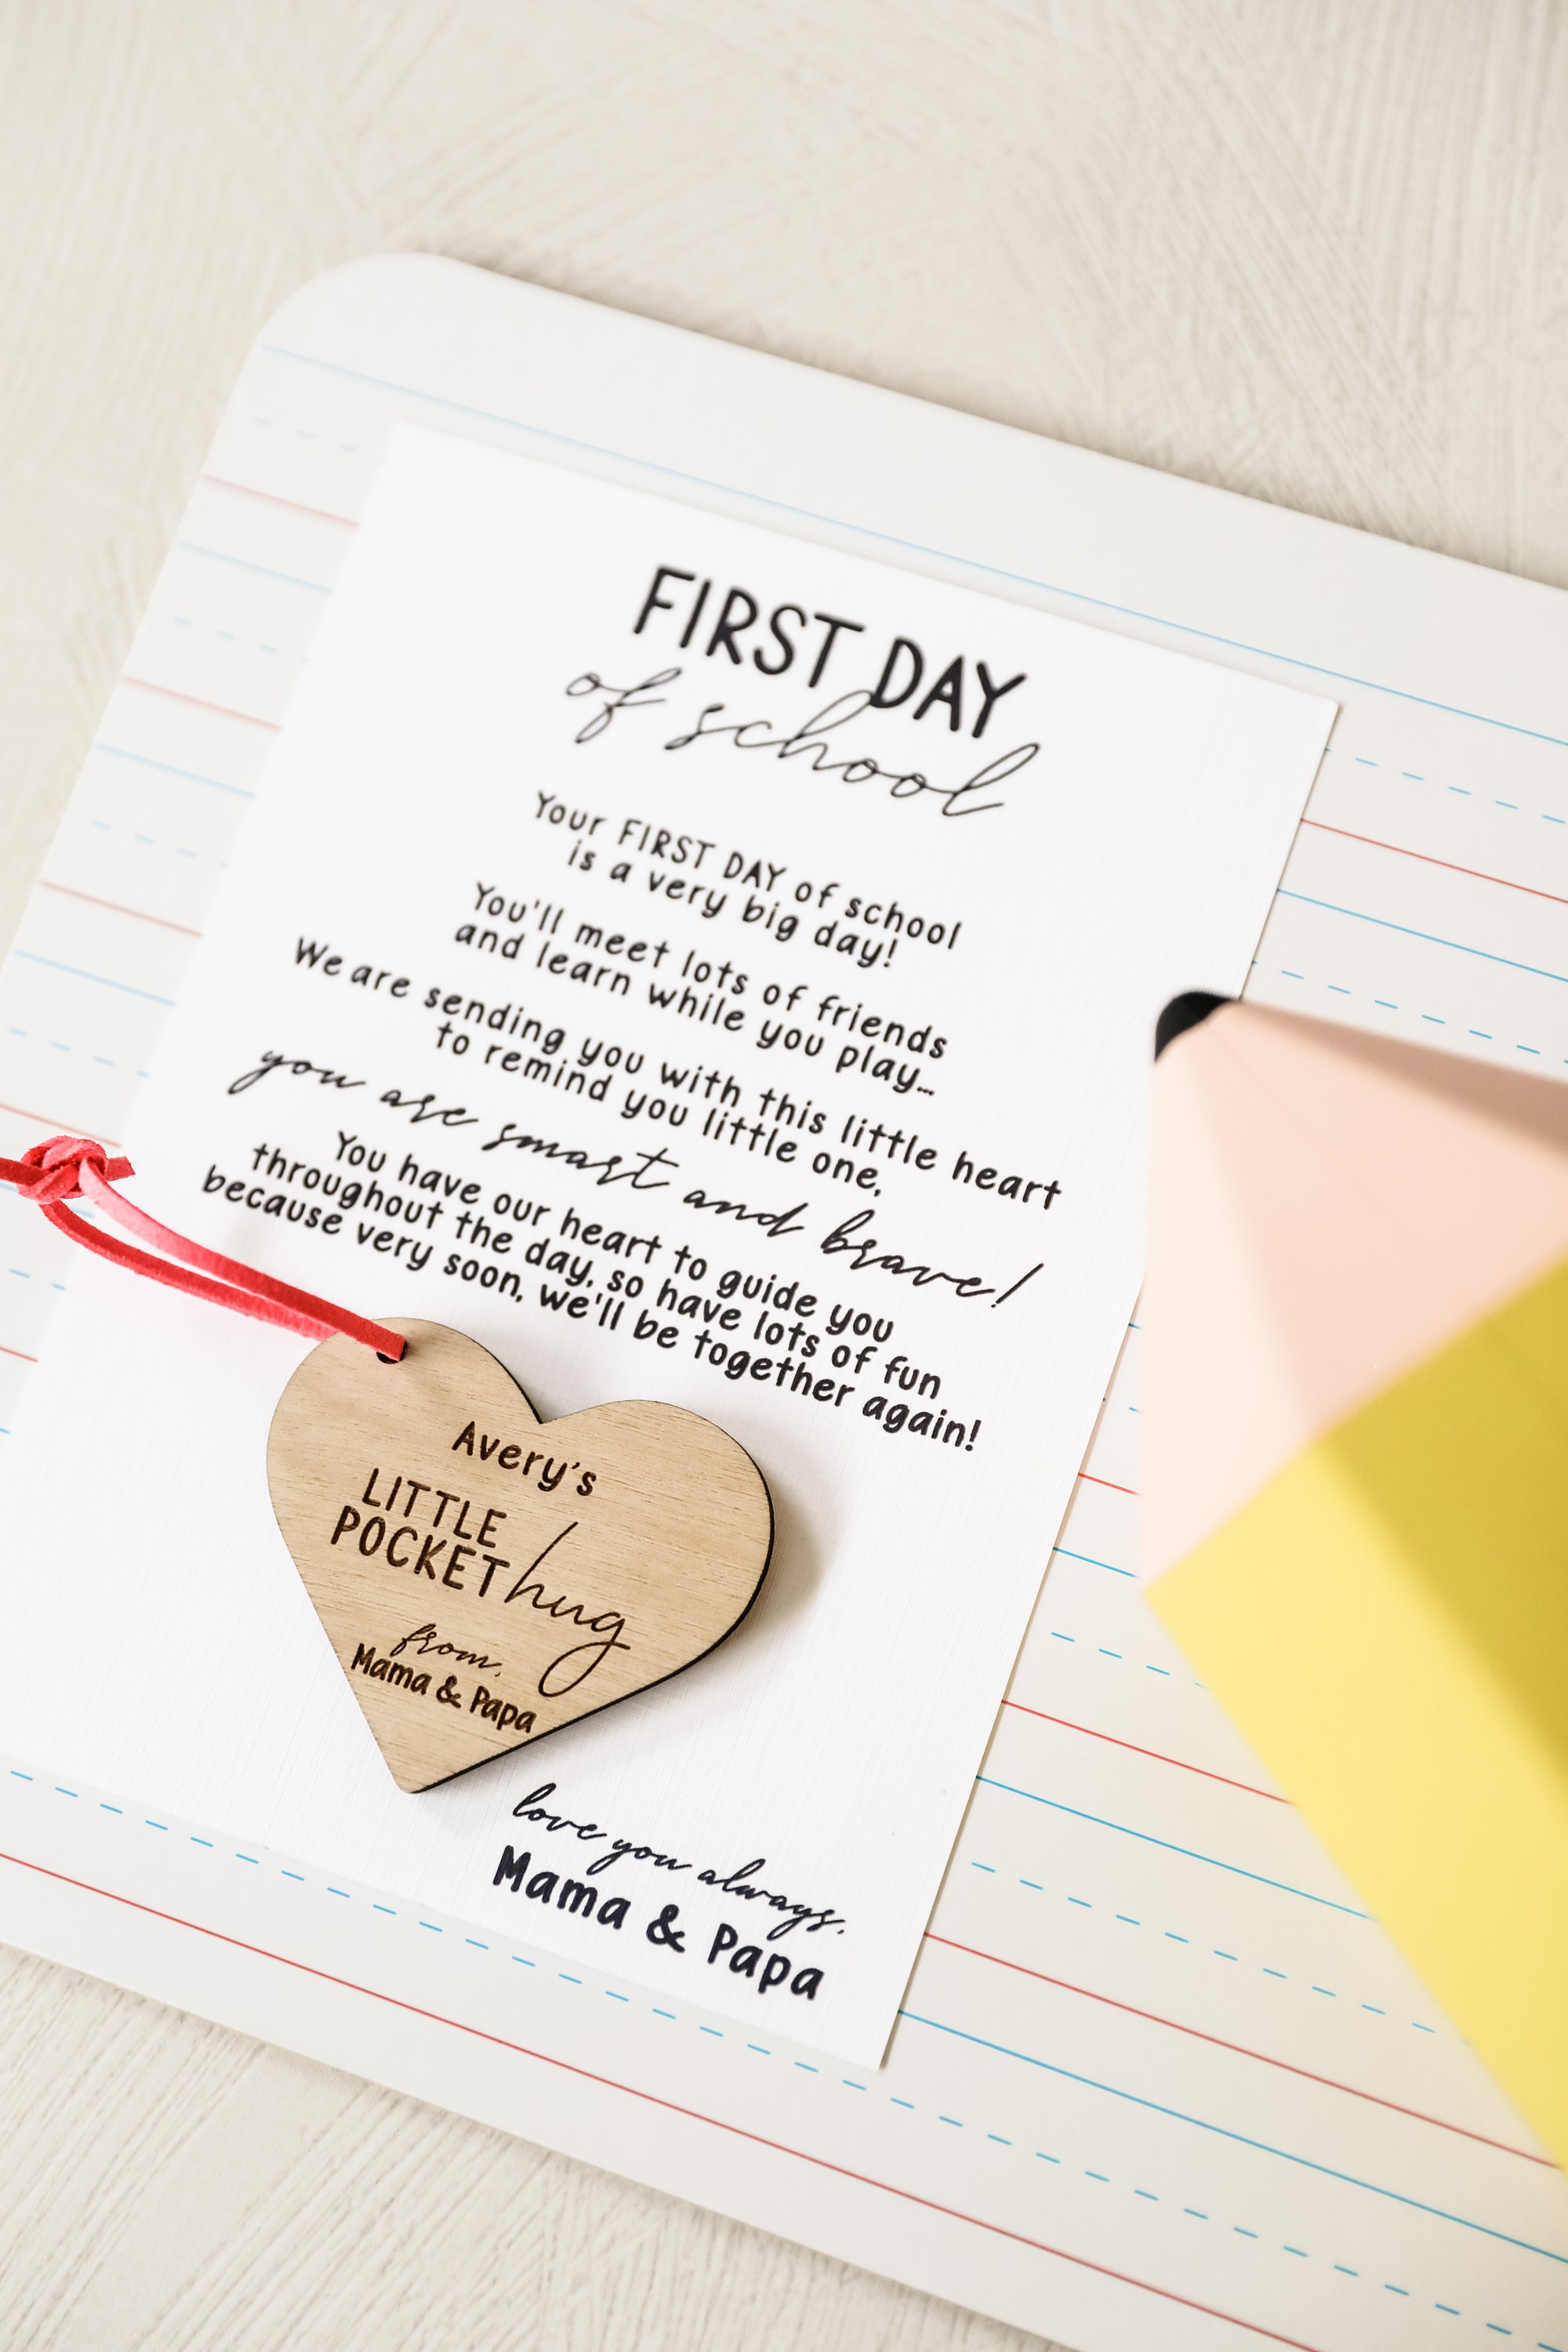 FIRST DAY
of school
Your FIRST DAY of school
is a very big day!
You'll meet lots of friends
and learn while you play...
We are sending you with this little heart
to remind you little one,
you are smart and brave!
You have our heart to guide you
throughout the day, so have lots of fun
because very soon, we'll be together again!
Avery's
LITTLE
POCKET hug
from,
Mama & Papa
love you always,
Mama & Papa